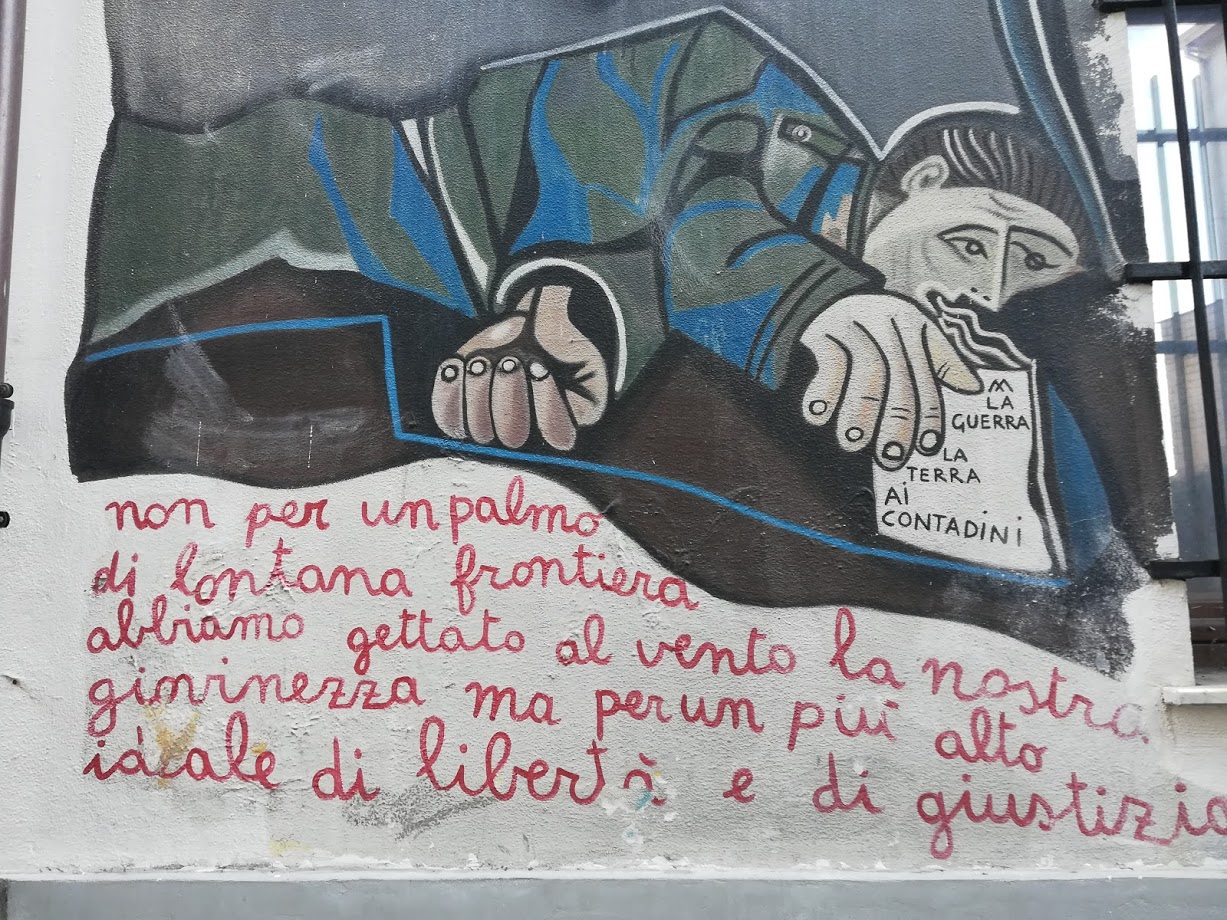 M
LA
GUERRA
LA
TERRA
Ai
CONTADiNi
non per un palmo
di lontana frontiera
abbiamo gettato al vento la nostra
giovinezza ma per un più alto
ideale di libertà e di giustizia